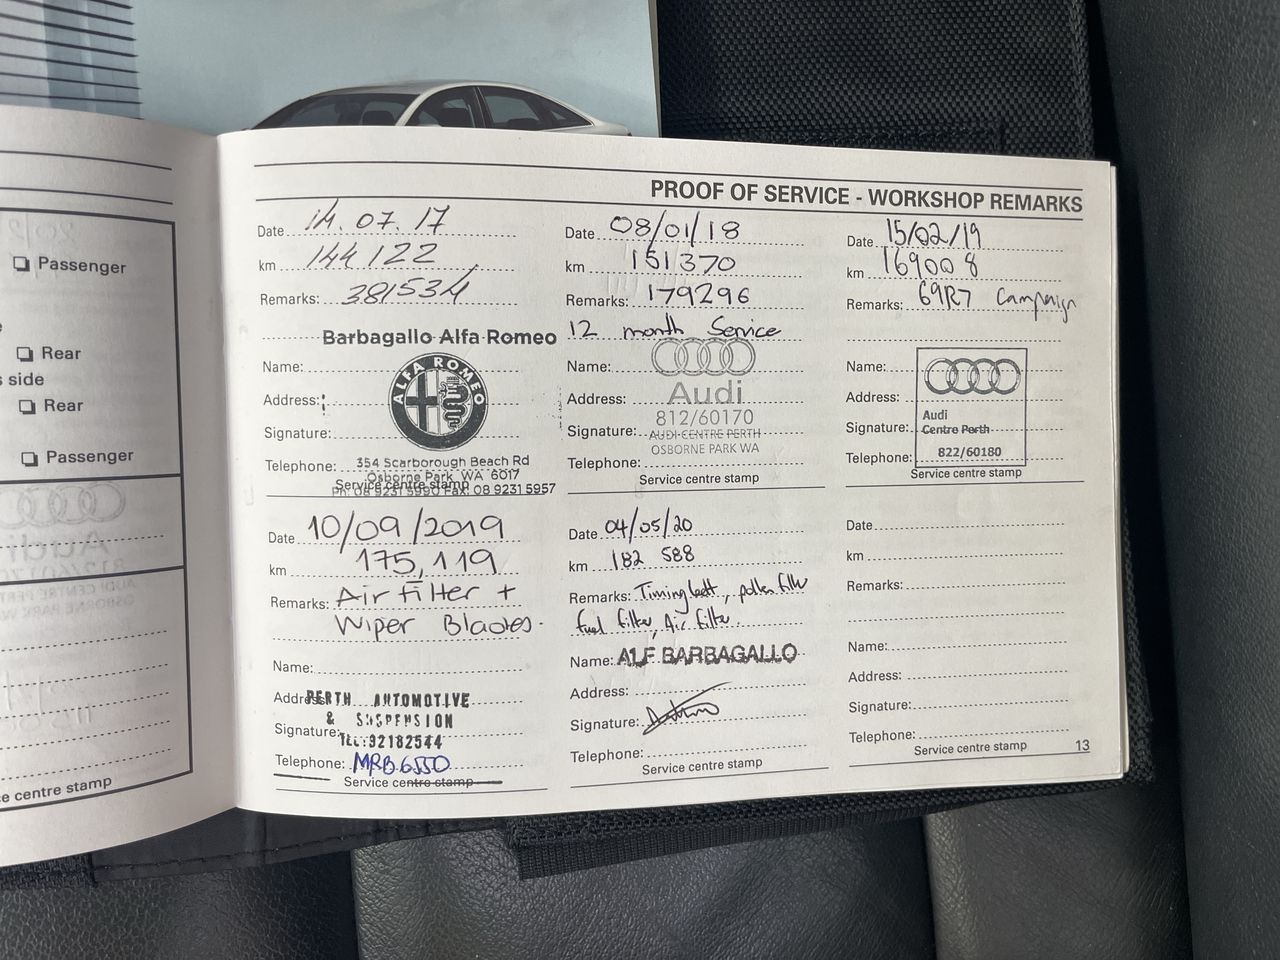 Passenger
Rear
s side
Rear
Passenger
e centre stamp
PROOF OF SERVICE - WORKSHOP REMARKS
Date 14.07.17
km 144122
Remarks: 381534
Barbagallo Alfa Romeo
Name:
ALFA ROMEO
Address:
Signature:
Telephone: 354 Scarborough Beach Rd
Osborne Park WA 6017
Service centre stamp
Ph: 08 9231 5990 Fax: 08 9231 5957
Date 08/01/18
km 151370
Remarks: 179296
12 month Service
Name:
Audi
Address: 812/60170
Signature: AUDI CENTRE PERTH
OSBORNE PARK WA
Telephone:
Service centre stamp
Date 15/02/19
km 169008
Remarks: 69R7 Campaign
Name:
Address:
Audi
Signature: Centre Perth
Telephone: 822/60180
Service centre stamp
Date 10/09/2019
km 175,119
Remarks: Air Filter +
Wiper Blades.
Name:
Address: PERTH AUTOMOTIVE
& SUSPENSION
Signature:
TEL:92182544
Telephone: MRB6550
Service centre stamp
Date 04/05/20
km 182 588
Remarks: Timing belt, pollen filter
fuel filter, Air filter.
Name: ALF BARBAGALLO
Address:
Signature:
Telephone:
Service centre stamp
Date
km
Remarks:
Name:
Address:
Signature:
Telephone:
Service centre stamp 13